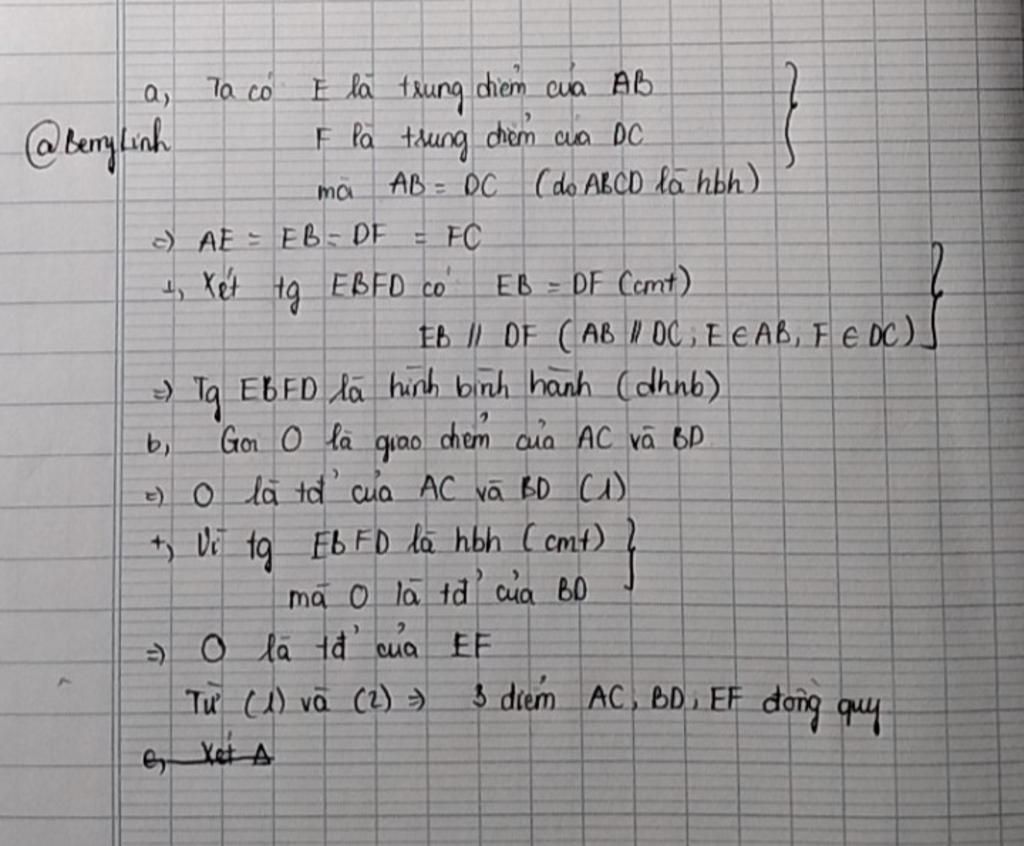 a, Ta có E là trung điểm của AB
@BerryLinh F là trung điểm của DC
mà AB = DC (do ABCD là hbh)
=> AE = EB = DF = FC
+, Xét tg EBFD có EB = DF (cmt)
EB // DF ( AB // DC ; E ∈ AB, F ∈ DC )
=> Tg EBFD là hình bình hành (dhnb)
b, Gọi O là giao điểm của AC và BD
=> O là tđ' của AC và BD (1)
+, Vì tg EBFD là hbh (cmt)
mà O là tđ' của BD
=> O là tđ' của EF
Từ (1) và (2) => 3 điểm AC, BD, EF đồng quy
c, Xét Δ